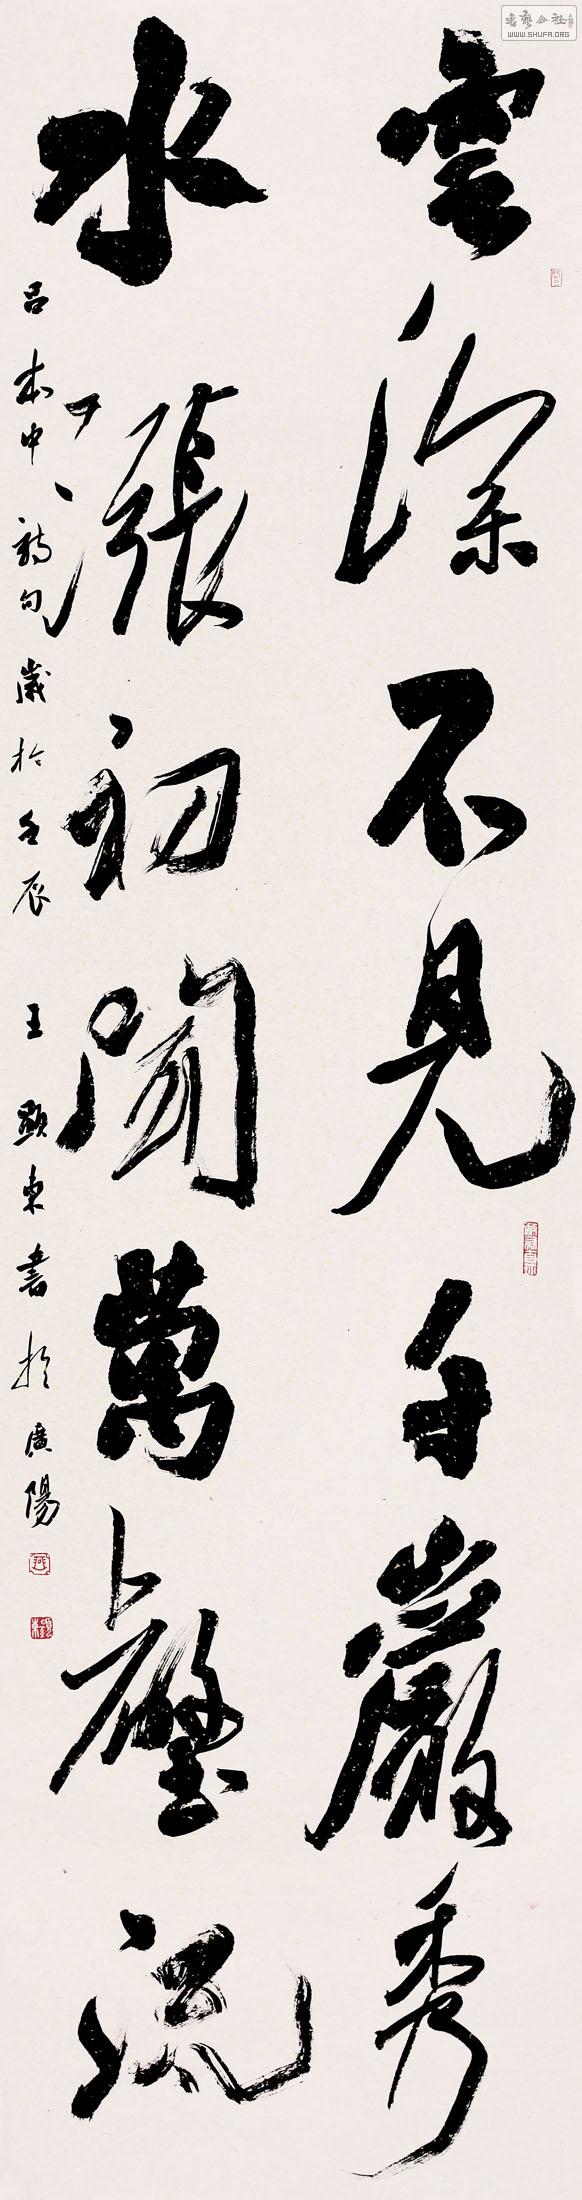 雲深不見千巖秀
水漲初聞萬壑流
吕本中詩句歲於壬辰 王顯東書於廣陽
WWW.SHUFA.ORG